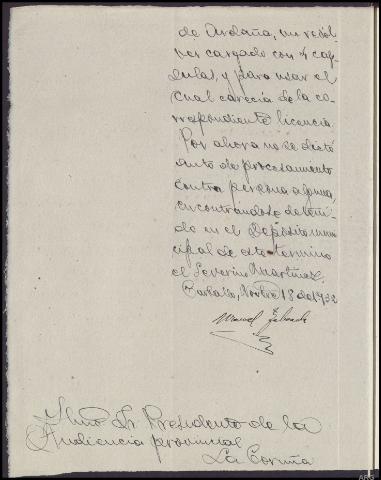 de Ardaña, un revól-
ver cargado con 4 cap-
sulas, y para usar el
cual carecía de la co-
rrespondiente licencia.
Por ahora no se dictó
auto de procesamiento
contra persona alguna,
encontrándose deteni-
do en el Depósito muni-
cipal de este termino
el Severino Martinez.
Carballo, Novbre 18 de 1932
Manuel
Ilmo Sr Presidente de la
Audiencia provincial
La Coruña
ARG